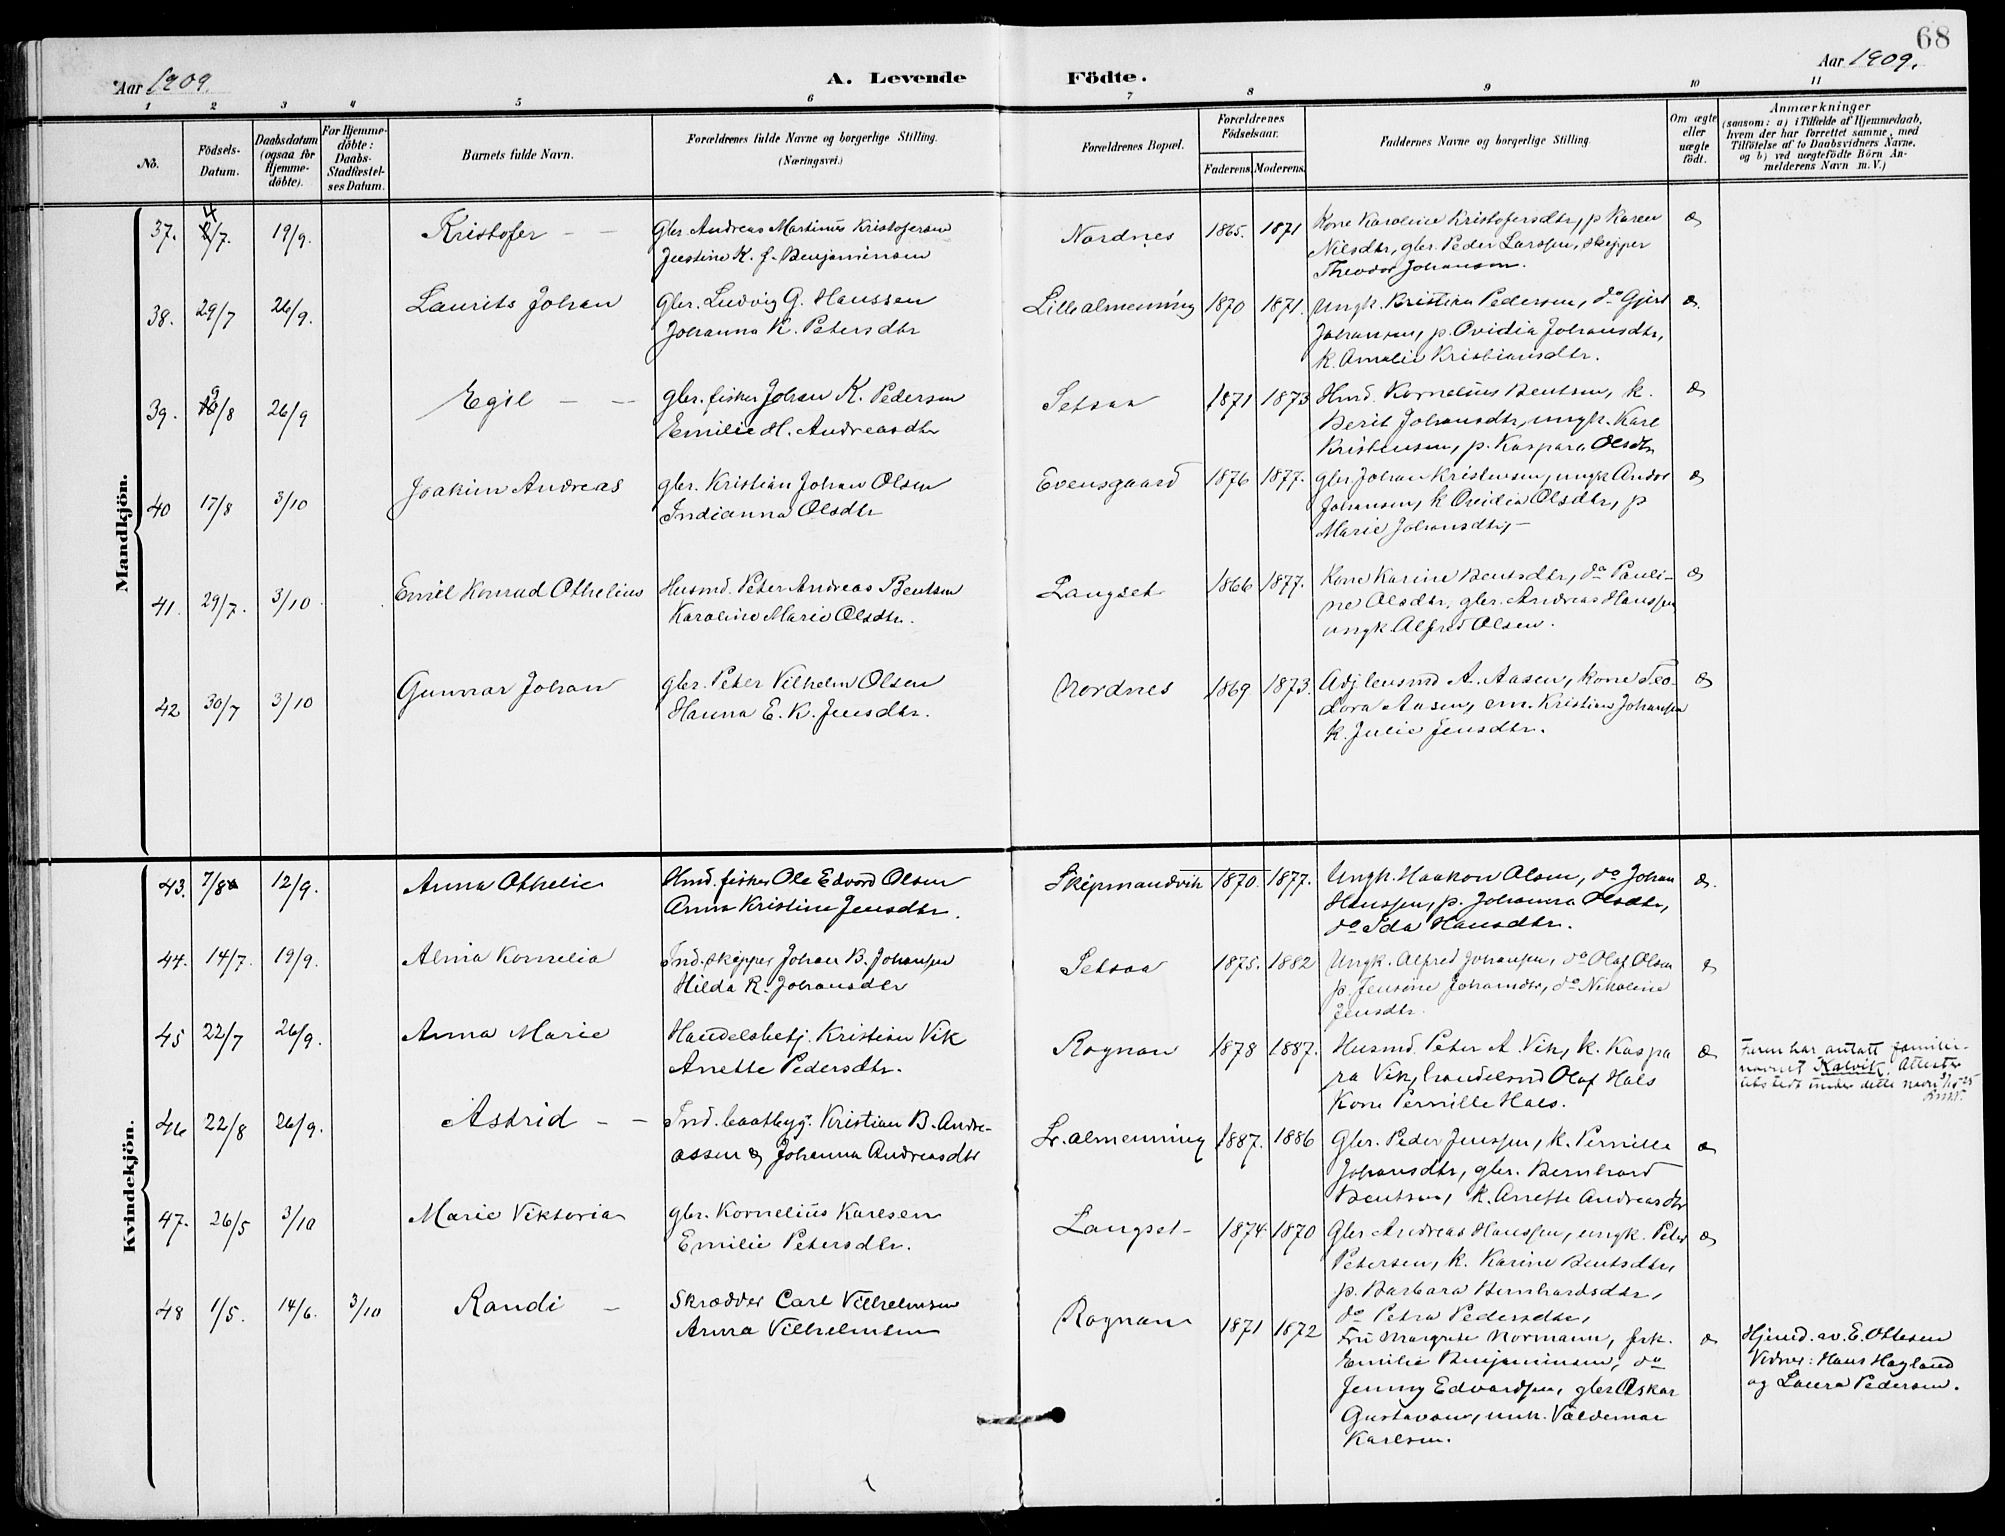 68
Aar 1909.
A. Levende Födte.
Aar 1909.
1 2 3 4 5 6 7 8 9 10 11
No.
Födsels-Datum.
Daabsdatum (ogsaa for Hjemme-döbte).
For Hjemme-döbte: Daabs-Stadfæstel-ses Datum.
Barnets fulde Navn.
Forældrenes fulde Navne og borgerlige Stilling.
(Næringsvei.)
Forældrenes Bopæl.
Forældrenes Födselsaar.
Faderens. Moderens.
Faddernes Navne og borgerlige Stilling.
Om ægte eller uægte födt.
Anmærkninger
(saasom: a) i Tilfælde af Hjemmedaab,
hvem der har forrettet samme, med
Tilföielse af to Daabsvidners Navne,
og b) ved uægtefödte Börn An-
melderens Navn m. V.)
Mandkjön.
37. 4/7. 19/9. Kristofer – – Gbr. Andreas Martinus Kristofersen
Justine K. f. Benjaminsen
Nordnes 1865. 1871 Kone Karoline Kristofersdtr, p Karen
Nilsdtr, gbr. Peder Larssen, skipper
Theodor Johansen.
æ
38. 29/7 26/9. Laurits Johan Gbr. Ludvig G. Hanssen
Johanna K. Petersdtr
Lillealmenning 1870 1871. Ungk. Kristian Pedersen, do Gjert
Johansen, p. Ovidia Johansdtr,
k. Amalie Kristiansdtr.
æ
39. 9/8 26/9 Egil – – gbr. fisker Johan K. Pedersen
Emilie H. Andreasdtr
Setsaa 1871 1873 Hmd. Kornelius Bentsen, k.
Berit Johansdtr, ungk. Karl
Kristensen, p. Kaspara Olsdtr
æ
40 17/8 3/10 Joakim Andreas gbr. Kristian Johan Olsen
Indianna Olsdtr
Evensgaard 1876 1877. gbr Johan Kristensen, ungk Andor
Johansen, k Ovidia Olsdtr, p
Marie Johansdtr, –
æ
41. 29/7. 3/10 Emil Konrad Othelius Husmd. Peter Andreas Bentsen
Karoline Marie Olsdtr.
Langset 1866 1877. Kone Karine Bentsdtr, do Pauli-
ne Olsdtr, gbr. Andreas Hanssen
ungk Alfred Olsen.
æ
42 30/7 3/10 Gunnar Johan gbr. Peter Vilhelm Olsen
Hanna E. K. Jensdtr.
Nordnes 1869 1873. Adj lensmd A. Aasen, kone Teo-
dora Aasen, em. Kristian Johansen
k. Julie Jensdtr.
æ
Kvindekjön.
43. 7/8 12/9. Anna Othelie Hmd. fisker Ole Edvard Olsen
Anna Kristine Jensdtr.
Skipmandvik 1870. 1877. Ungk. Haakon Olsen, do Johan
Hanssen, p. Johanna Olsdtr,
do Ida Hansdtr.
æ.
44. 14/7. 19/9. Alma Kornelia Ind. skipper Johan B. Johansen
Hilda R. Johansdtr
Setsaa 1875. 1882 Ungk. Alfred Johansen, do Olaf Olsen
p. Jensine Johansdtr, do Nikoline
Jensdtr.
æ
45 22/7 26/9. Anna Marie Handelsbetj. Kristian Vik
Anette Pedersdtr.
Rognan 1878 1887. Husmd. Peter A. Vik, k. Kaspa
ra Vik, handelsmd Olaf Hals
Kone Pernille Hals.
æ Faren har antatt familie-
navnet Kalvik. Attester
utstedt under dette navn
46 22/8 26/9. Astrid – – Ind. baatbygr. Kristian B. Andre-
assen & Johanna Andreasdtr
St. almenning 1887. 1886 Gbr. Peder Jenssen, k. Pernille
Johansdtr, gbr. Bernhard
Bentsen, k. Anette Andreasdtr
æ
47. 26/5 3/10 Marie Viktoria gbr. Kornelius Karlsen
Emilie Petersdtr.
Langset 1874 1870 Gbr Andreas Hanssen, ungk. Peter
Petersen, k. Karine Bentsdtr,
p. Barbara Bernhardsdtr,
do Petra Pedersdtr,
æ
48 1/5. 14/6. 3/10 Randi – Skrædder Carl Vilhelmsen
Anna Vilhelmsen
Rognan 1871 1872 Fru Margrete Normann, frk.
Emilie Benjaminsen, do
Jenny Edvardsen, gbr Oskar
Gustavsen, unk. Valdemar
Karlsen.
æ Hjemd. av E. Ottesen
Vidner: Hans Hagland
og Laura Pedersen.